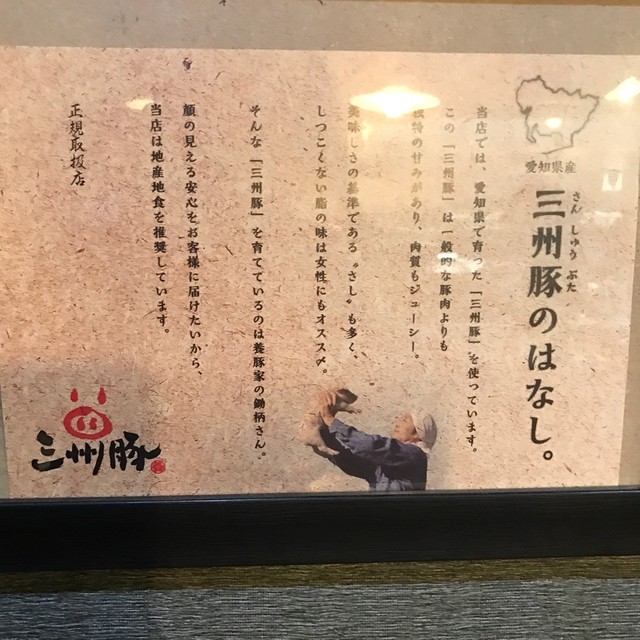 愛知県産
さんしゅうぶた
三州豚のはなし。
当店では、愛知県で育った「三州豚」を使っています。
この「三州豚」は一般的な豚肉よりも
独特の甘みがあり、肉質もジューシー。
美味しさの基準である〝さし〟も多く、
しつこくない脂の味は女性にもオススメ。
そんな「三州豚」を育てているのは養豚家の鋤柄さん。
顔の見える安心をお客様に届けたいから、
当店は地産地食を推奨しています。
正規取扱店
三州豚